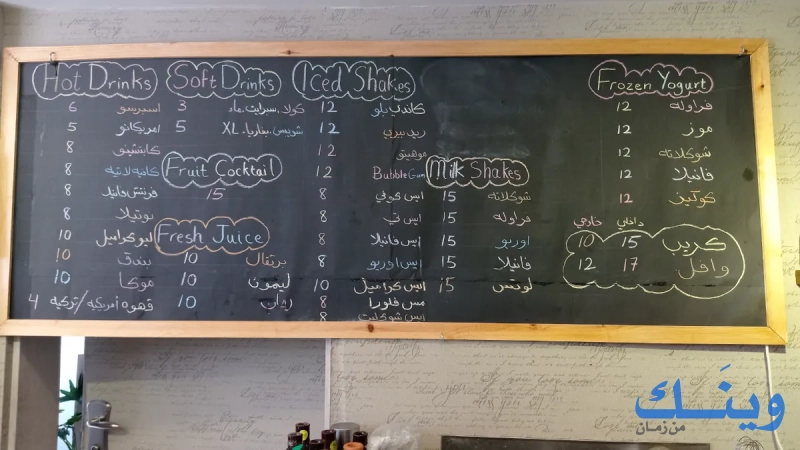 Hot Drinks
اسبرسو 6
امريكانو 5
كابتشينو 8
كافيه لاتيه 8
فرنتش فانيلا 8
نوتيلا 8
ليو كراميل 10
بندق 10
موكا 10
قهوة أمريكية / تركية 4
Soft Drinks
كولا . سبرايت . ماء 3
شويبس . بفاريا . XL 5
Fruit Cocktail
15
Fresh Juice
برتقال 10
ليمون 10
10
Iced Shakes
كاندي بلو 12
ريد بيري 12
موهيتو 12
Bubble Gum 12
ايس كوفي 8
ايس تي 8
ايس فانيلا 8
ايس اوريو 8
ايس كراميل 10
مس فلورا 8
ايس شوكليت 8
Milk Shakes
شوكلاته 15
فراوله 15
اوريو 15
فانيلا 15
لوتس 15
Frozen Yogurt
فراوله 12
موز 12
شوكلاته 12
فانيلا 12
كوكيز 12
داخلي خارجي
كريب 15 10
وافل 17 12
وينك
من زمان